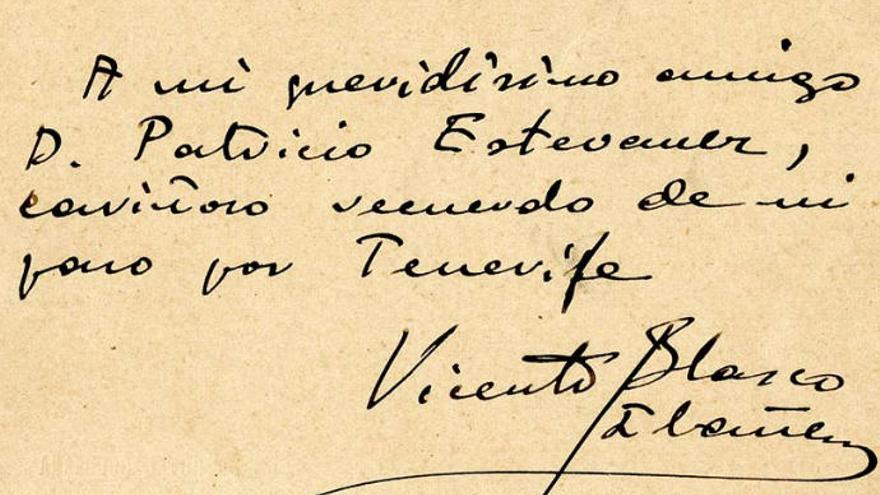 A mi queridísimo amigo
D. Patricio Estevanez,
cariñoso recuerdo de mi
paso por Tenerife
Vicente Blasco
Ibañez